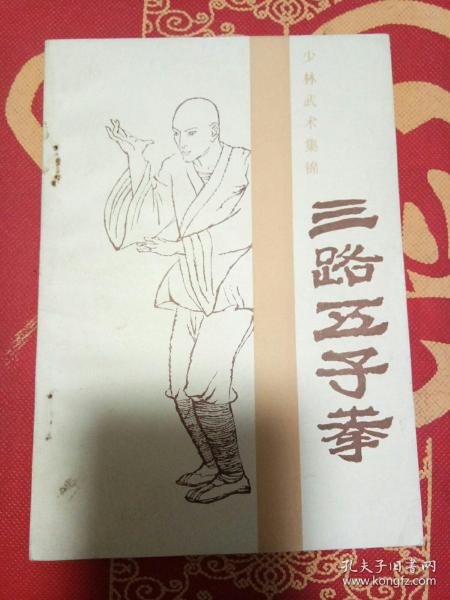 少林武术集锦
三路五子拳
孔夫子旧书网
www.kongfz.com